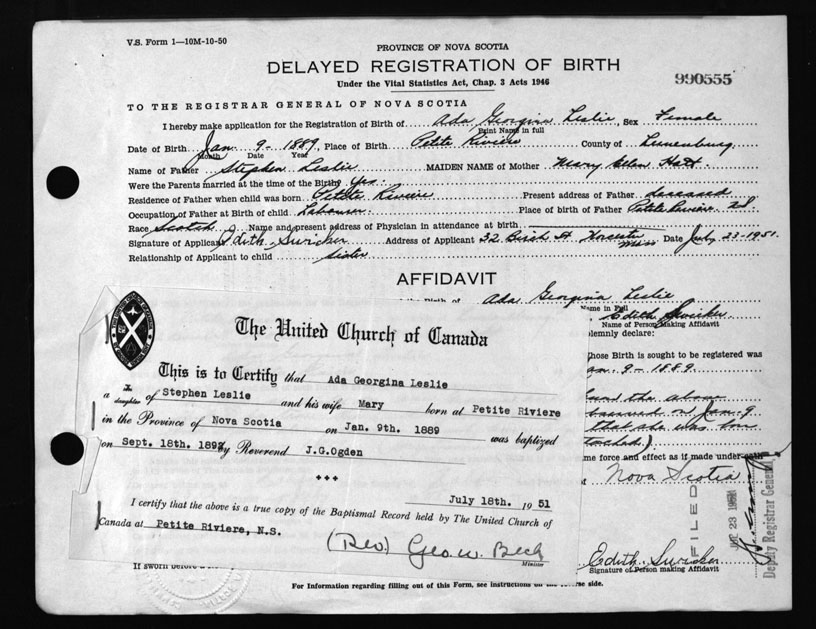 V.S. Form 1—10M-10-50
PROVINCE OF NOVA SCOTIA
DELAYED REGISTRATION OF BIRTH
Under the Vital Statistics Act, Chap. 3 Acts 1946
990555
TO THE REGISTRAR GENERAL OF NOVA SCOTIA
I hereby make application for the Registration of Birth of Ada Georgina Leslie, Sex Female
Print Name in full
Date of Birth Jan. 9 - 1889, Place of Birth Petite Riviere County of Lunenburg
Month Date Year
Name of Father Stephen Leslie MAIDEN NAME of Mother Mary Ellen
Were the Parents married at the time of the Birth? Yes.
Residence of Father when child was born Petite Riviere Present address of Father deceased
Occupation of Father at Birth of child Labourer Place of birth of Father Petite Riviere N.S.
Race Scotch Name and present address of Physician in attendance at birth
Signature of Applicant Edith Swicker Address of Applicant 32 Birch St Worcester Mass Date July 23-1951.
Relationship of Applicant to child sister
AFFIDAVIT
Birth of Ada Georgina Leslie
Name in Full
Edith Swicker
Name of Person Making Affidavit
olemnly declare:
hose Birth is sought to be registered was
an. 9 - 1889.
the above
on Jan. 9
that she was born
tached).
me force and effect as if made under oath
Nova Scotia
The United Church of Canada
This is to Certify that Ada Georgina Leslie
a daughter of Stephen Leslie and his wife Mary born at Petite Riviere
in the Province of Nova Scotia on Jan. 9th. 1889 was baptized
on Sept. 18th. 1892 by Reverend J.G.Ogden
I certify that the above is a true copy of the Baptismal Record held by The United Church of
July 18th. 1951
Canada at Petite Riviere, N.S.
(Rev.) Geo. W. Beck
Minister
FILED
JUL 23 1951
Deputy Registrar General
Edith Swicker
Signature of Person making Affidavit
If sworn before a
For Information regarding filling out of this Form, see instructions on the reverse side.